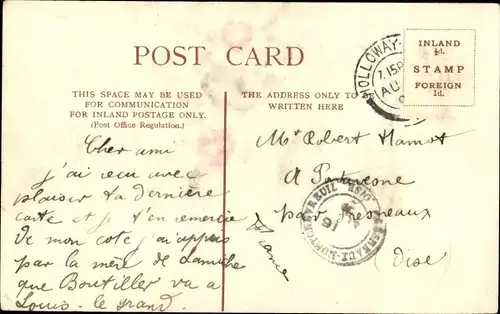 POST CARD
THIS SPACE MAY BE USED
FOR COMMUNICATION
FOR INLAND POSTAGE ONLY.
(Post Office Regulation.)
THE ADDRESS ONLY TO
WRITTEN HERE
INLAND
½d.
STAMP
FOREIGN
1d.
HOLLOWAY
7.15P
AU
Cher ami
j'ai reçu avec
plaisir ta dernière
carte et je t'en remercie
De mon coté j'ai appris
par la mère de
que Boutiller va a
Louis - le grand.
Mr Robert Hamot
A
par Fresneaux
(Oise)
France